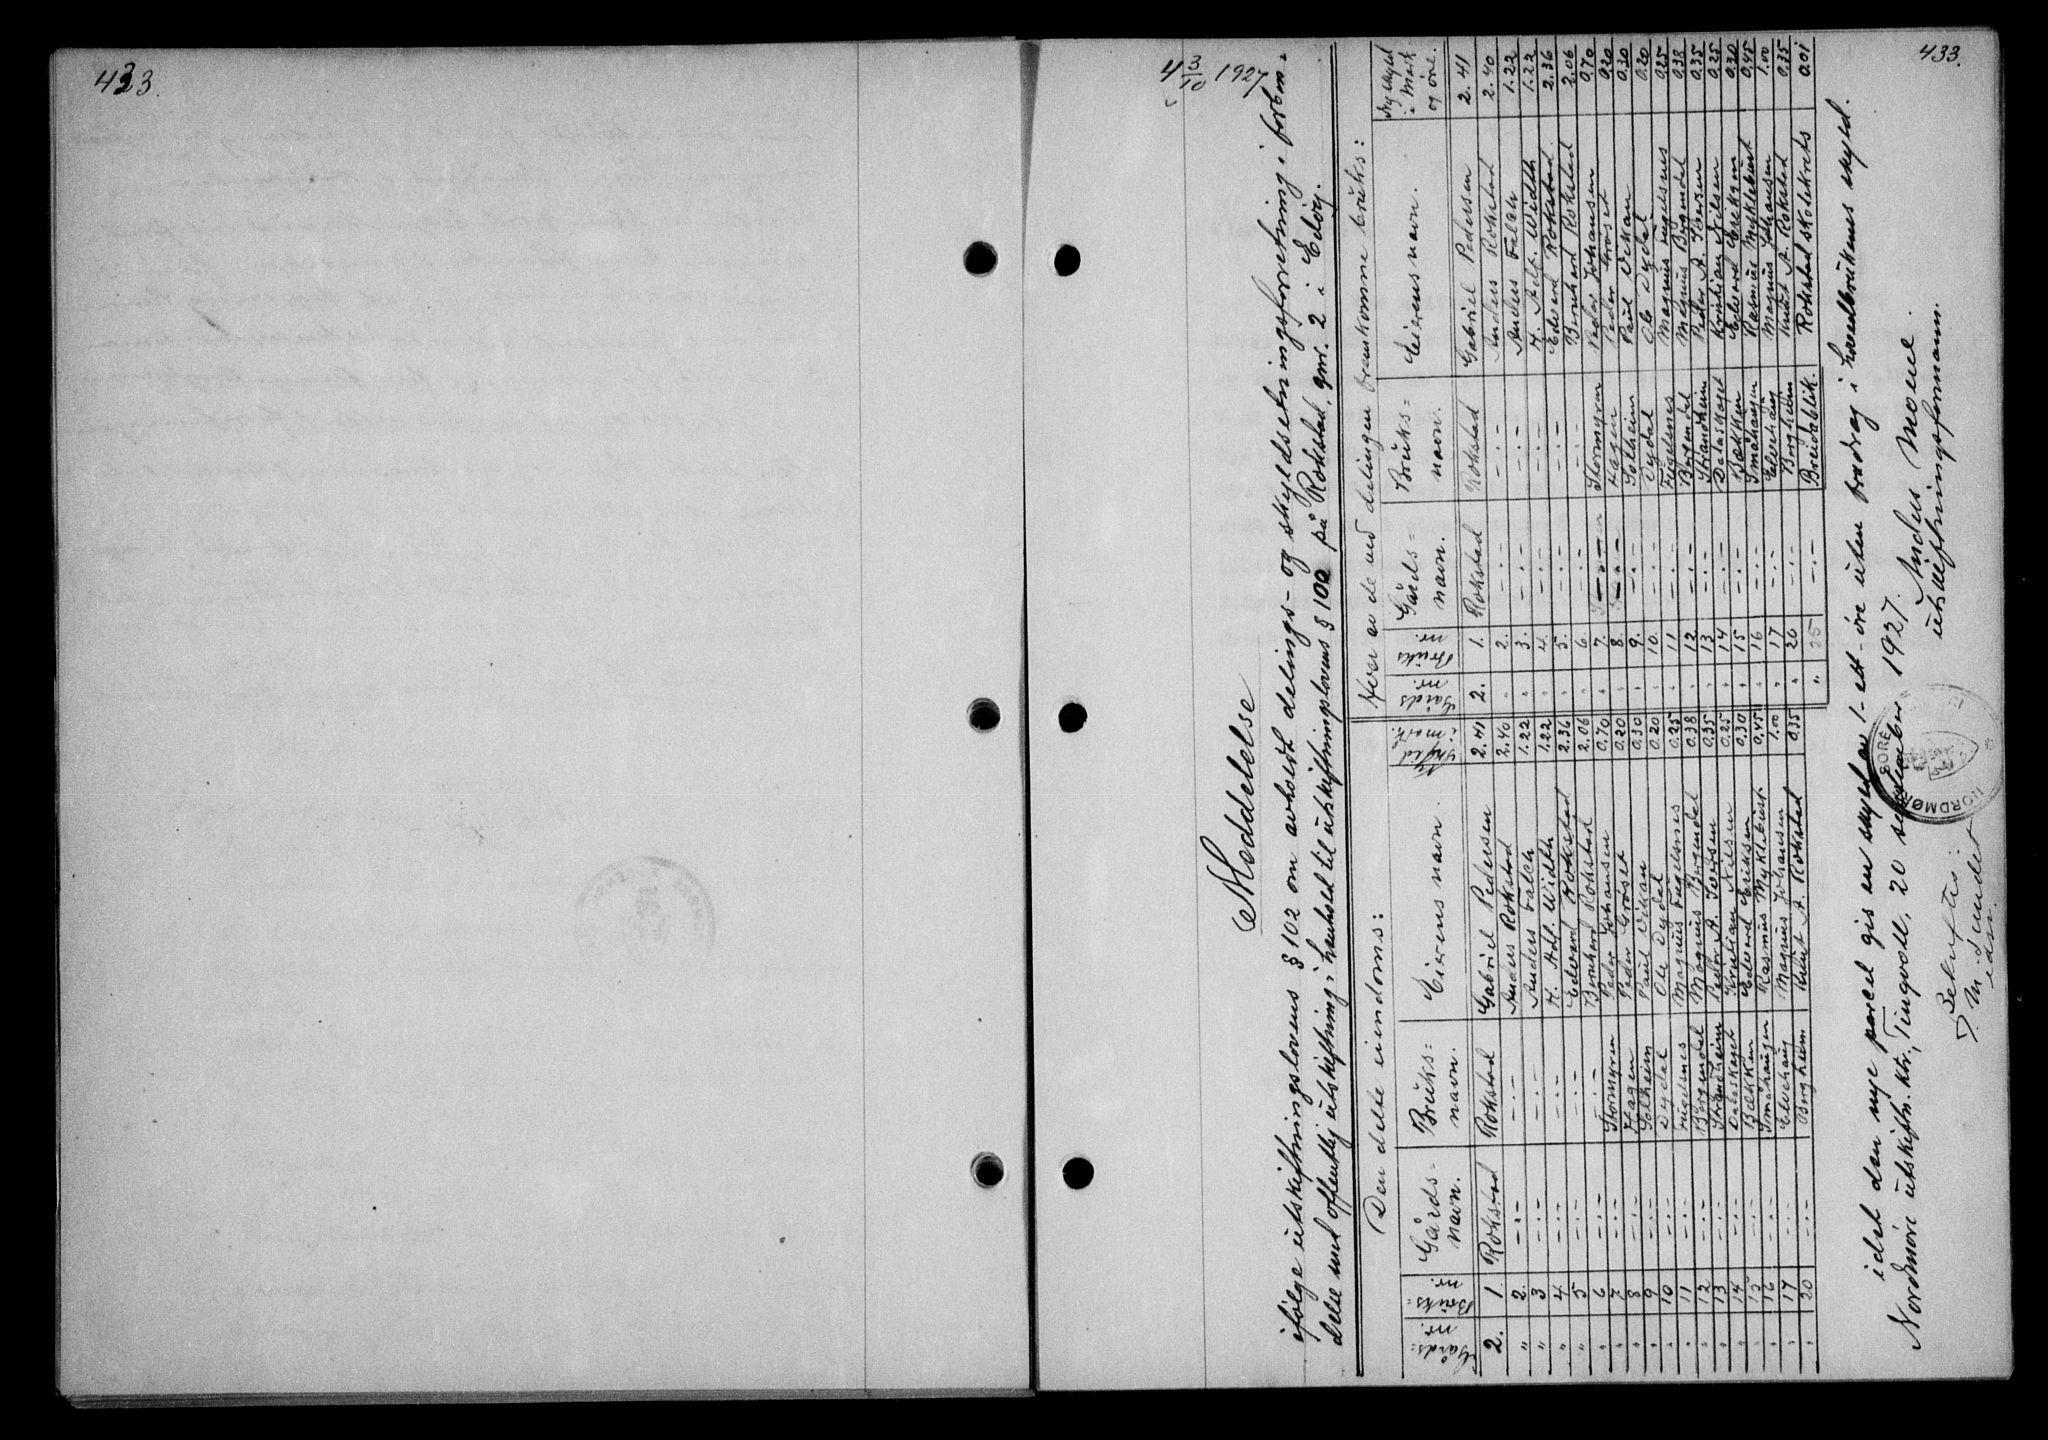 423
4 3/10 1927
433.
Meddelelse
ifölge utskiftningslovens § 102 om avholdt delings- og skyldsetningsforretning i forbin=
delse med offentlig utskiftning i henhold til utskiftningslovens § 100 på Rokstad, gnr. 2 i Edöy.
Den delte eiendoms:
Gårds= nr. | Bruks= nr. | Gårds= navn. | Bruks= navn. | Eierens navn. | Skyld i mark.
2. | 1. | Rokstad | Rokstad | Gabriel Pedersen | 2.41
" | 2. | -.- | -.- | Anders Rokstad | 2.40
" | 3 | -.- | -.- | Anders Falch | 1.22
" | 4. | -.- | -.- | H. Adf. Width | 1.22
" | 5 | -.- | -.- | Edvard Rokstad | 2.36
" | 6 | -.- | -.- | Bernhard Rokstad | 2.06
" | 7 | -.- | Stormyren | Peder Johansen | 0.70
" | 8 | -.- | Hagen | Peder Groset | 0.20
" | 9 | -.- | Solheim | Paul Vikan | 0.30
" | 10 | -.- | Dydal | Ole Dydal | 0.20
" | 11 | -.- | Fuglenes | Magnus Fuglenes | 0.25
" | 12 | -.- | Bergendal | Magnus Bergendal | 0.38
" | 13 | -.- | Strandheim | Peder A. Iversen | 0.35
" | 14 | -.- | Dalaskaget | Kristian Nilsen | 0.25
" | 15 | -.- | Bakken | Edvard Eriksen | 0.30
" | 16 | -.- | Småhaugen | Rasmus Myklebust | 0.45
" | 17 | -.- | Elvehaug | Magnus Johansen | 1.00
" | 20 | -.- | Borgheim | Knut A. Rokstad | 0.35
Hver av de ved delingen fremkomne bruks:
Gårds nr. | Bruks nr. | Gårds= navn. | Bruks= navn. | Eierens navn. | Ny skyld i mark og öre.
2. | 1. | Rokstad | Rokstad | Gabriel Pedersen | 2.41
" | 2. | -.- | -.- | Anders Rokstad | 2.40
" | 3. | -.- | -.- | Anders Falch | 1.22
" | 4. | -.- | -.- | H. Adf. Width | 1.22
" | 5. | -.- | -.- | Edvard Rokstad. | 2.36
" | 6. | -.- | -.- | Bernhard Rokstad | 2.06
" | 7. | -.- | Stormyren | Peder Johansen | 0.70
" | 8. | -.- | Hagen | Peder Groset | 0.20
" | 9. | -.- | Solheim | Paul Vikan | 0.30
" | 10. | -.- | Dydal | Ole Dydal | 0.20
" | 11 | -.- | Fuglenes | Magnus Fuglenes | 0.25
" | 12 | -.- | Bergendal | Magnus Bergendal | 0.38
" | 13 | -.- | Strandheim | Peder A. Iversen | 0.35
" | 14 | -.- | Dalaskaget | Kristian Nilsen | 0.25
" | 15 | -.- | Bakken | Edvard Eriksen | 0.30
" | 16 | -.- | Småhaugen | Rasmus Myklebust | 0.45
" | 17 | -.- | Elvehaug | Magnus Johansen | 1.00
" | 20 | -.- | Borgheim | Knut A. Rokstad | 0.35
" | 25 | -.- | Breidablik. | Rokstad skolekrets | 0.01
idet den nye parcel gis en skyld av 1 - ett - öre uten fradrag i hovedbrukens skyld.
Nordmöre utskiftn. ktr., Tingvoll, 20 september 1927. Anders Moene.
utskiftningsformann.
Bekreftes:
NORDMØRE SORE